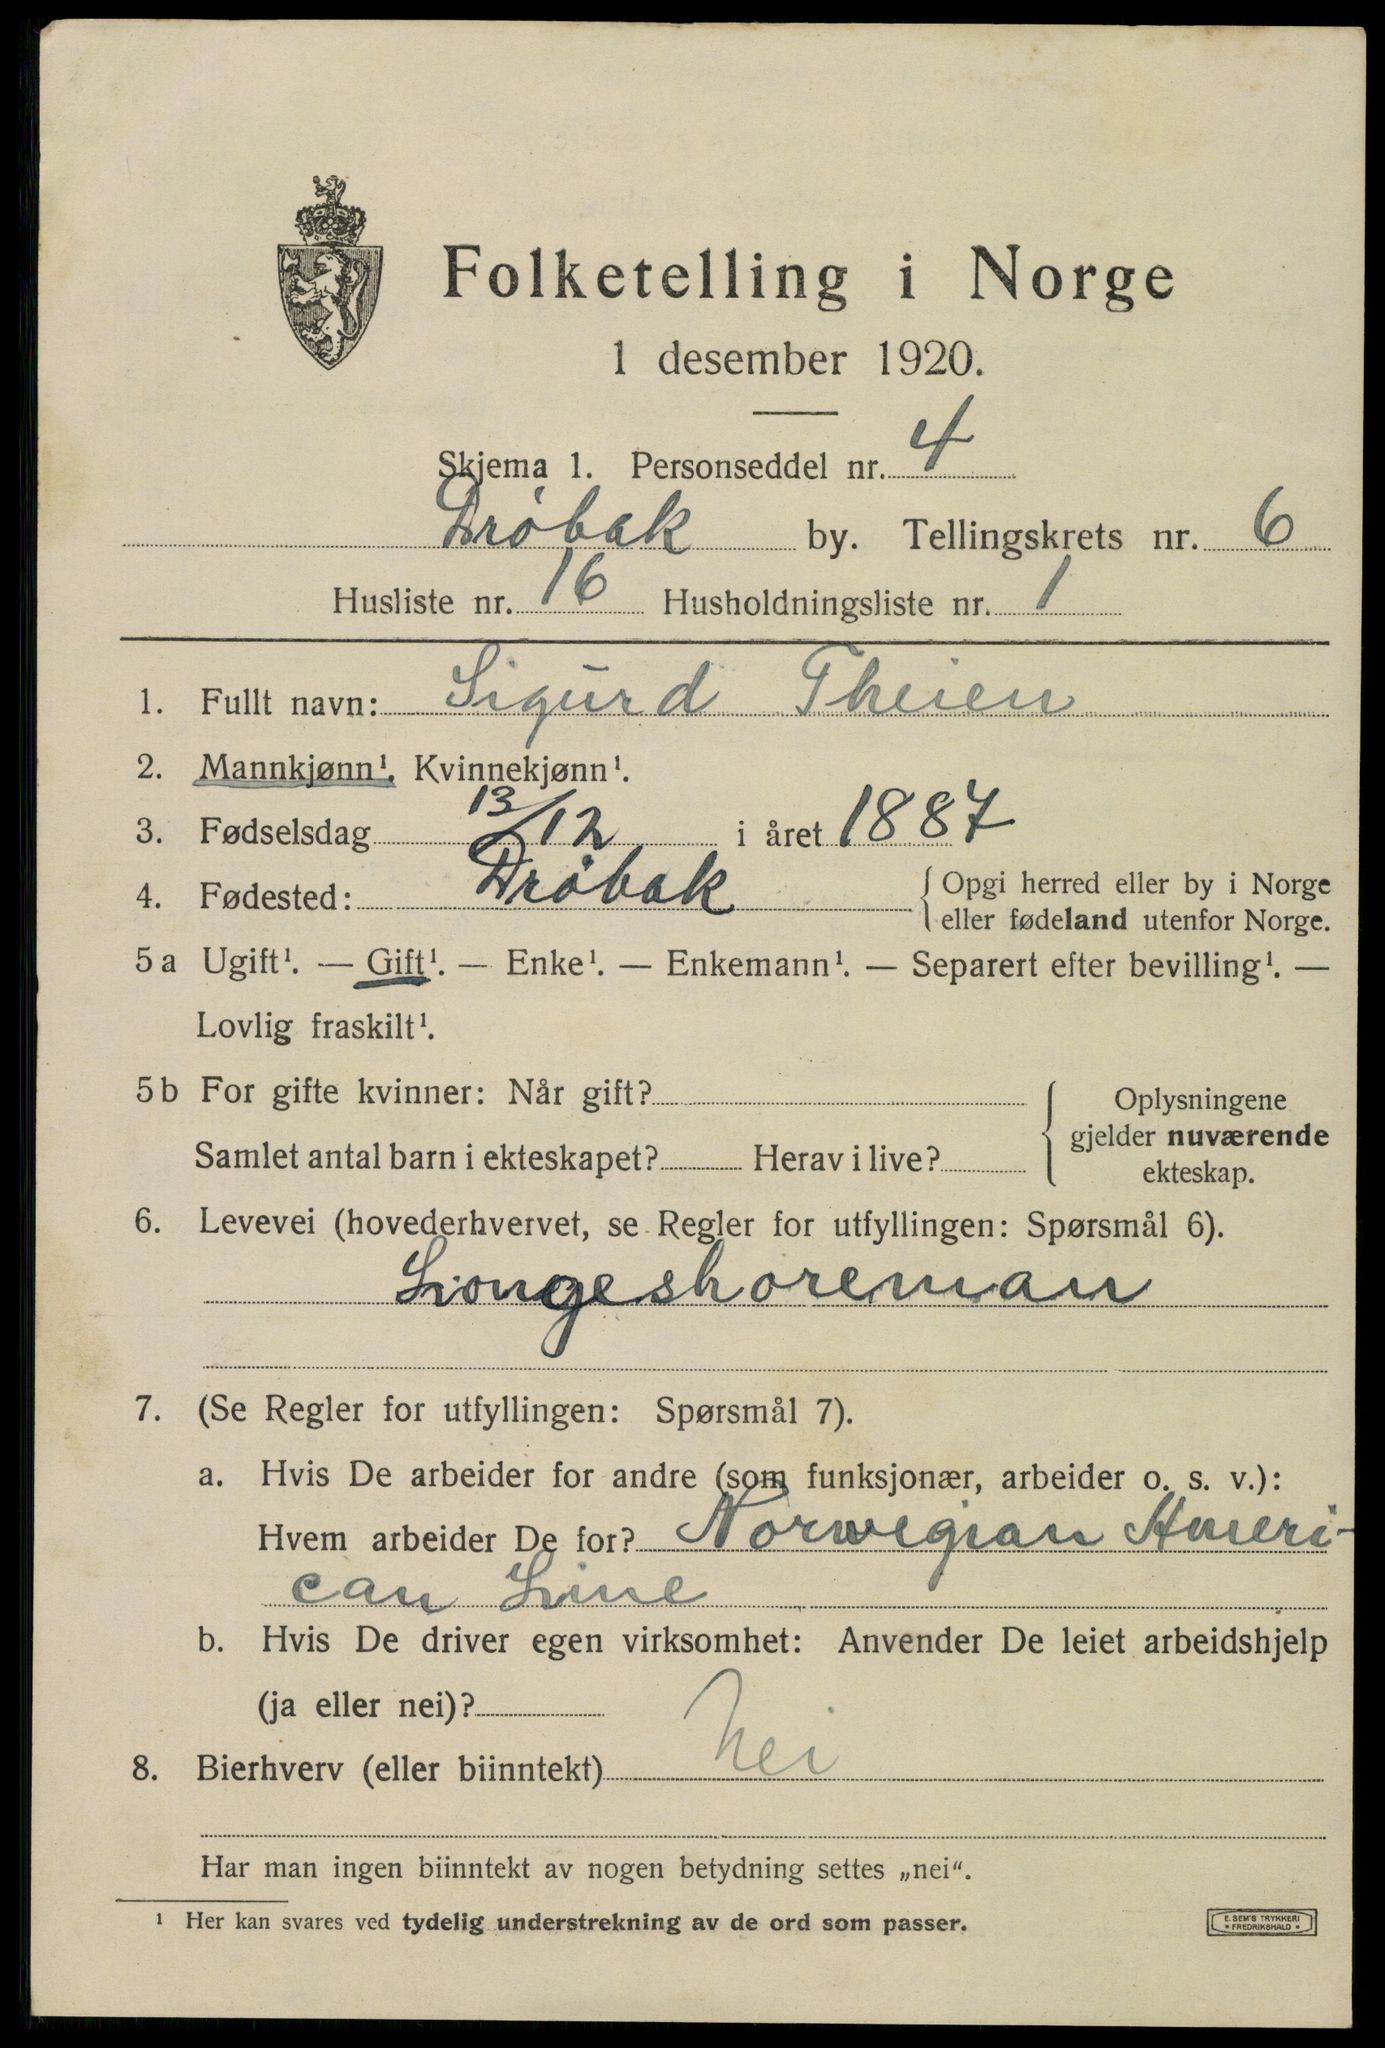 Folketelling i Norge
1 desember 1920.
Skjema 1. Personseddel nr. 4
Drøbak by. Tellingskrets nr. 6
Husliste nr. 16 Husholdningsliste nr. 1
1. Fullt navn: Sigurd Theien
2. Mannkjønn¹. Kvinnekjønn¹.
3. Fødselsdag 13/12 i året 1887
4. Fødested: Drøbak { Opgi herred eller by i Norge
eller fødeland utenfor Norge.
5a Ugift¹. — Gift¹. — Enke¹. — Enkemann¹. — Separert efter bevilling¹. —
Lovlig fraskilt¹.
5b For gifte kvinner: Når gift? { Oplysningene
gjelder nuværende
ekteskap.
Samlet antal barn i ekteskapet? Herav i live?
6. Levevei (hovederhvervet, se Regler for utfyllingen: Spørsmål 6).
Longeshoreman
7. (Se Regler for utfyllingen: Spørsmål 7).
a. Hvis De arbeider for andre (som funksjonær, arbeider o. s. v.):
Hvem arbeider De for? Norwegian Ameri-
can Line
b. Hvis De driver egen virksomhet: Anvender De leiet arbeidshjelp
(ja eller nei)?
8. Bierhverv (eller biinntekt) Nei
Har man ingen biinntekt av nogen betydning settes „nei“.
¹ Her kan svares ved tydelig understrekning av de ord som passer.
E. SEM'S TRYKKERI
* FREDRIKSHALD *